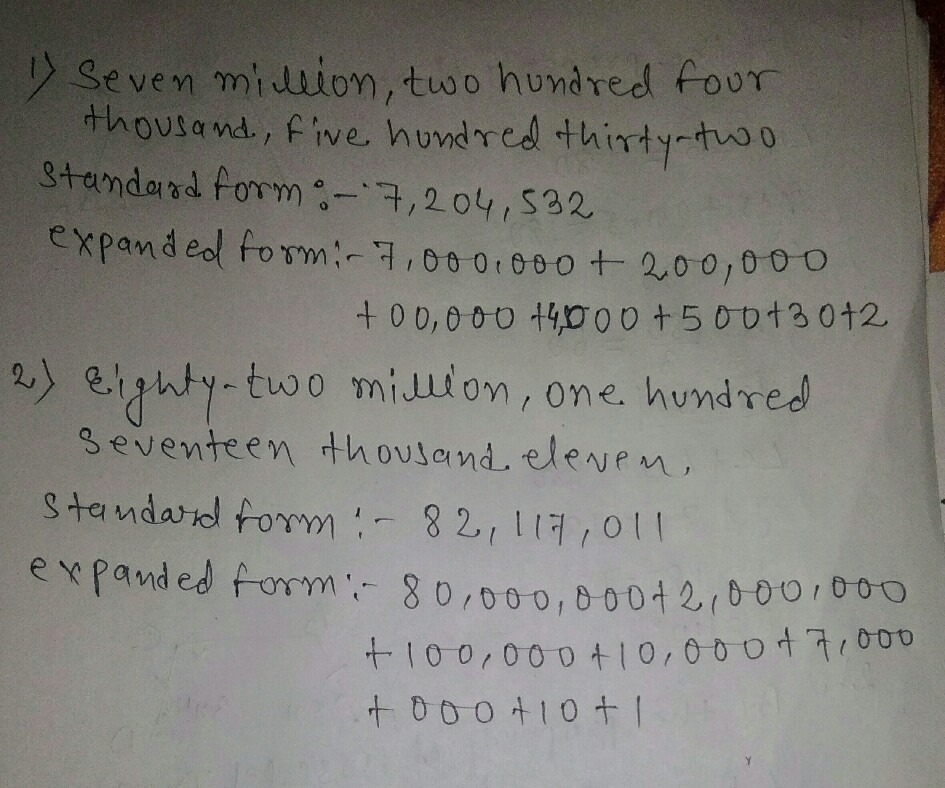 1) Seven million, two hundred four
thousand, five hundred thirty-two
Standard form :- 7,204,532
expanded form :- 7,000,000 + 200,000
+ 00,000 + 4,000 + 500 + 30 + 2
2) Eighty-two million, one hundred
seventeen thousand eleven.
Standard form :- 82,117,011
expanded form :- 80,000,000 + 2,000,000
+ 100,000 + 10,000 + 7,000
+ 000 + 10 + 1